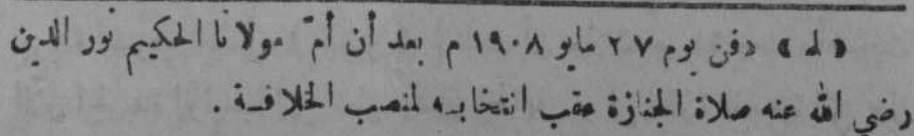 «له» دفن يوم ٢٧ مايو ١٩٠٨ م بعد أن أمّ مولانا الحكيم نور الدين
رضي الله عنه صلاة الجنازة عقب انتخابه لمنصب الخلافة .